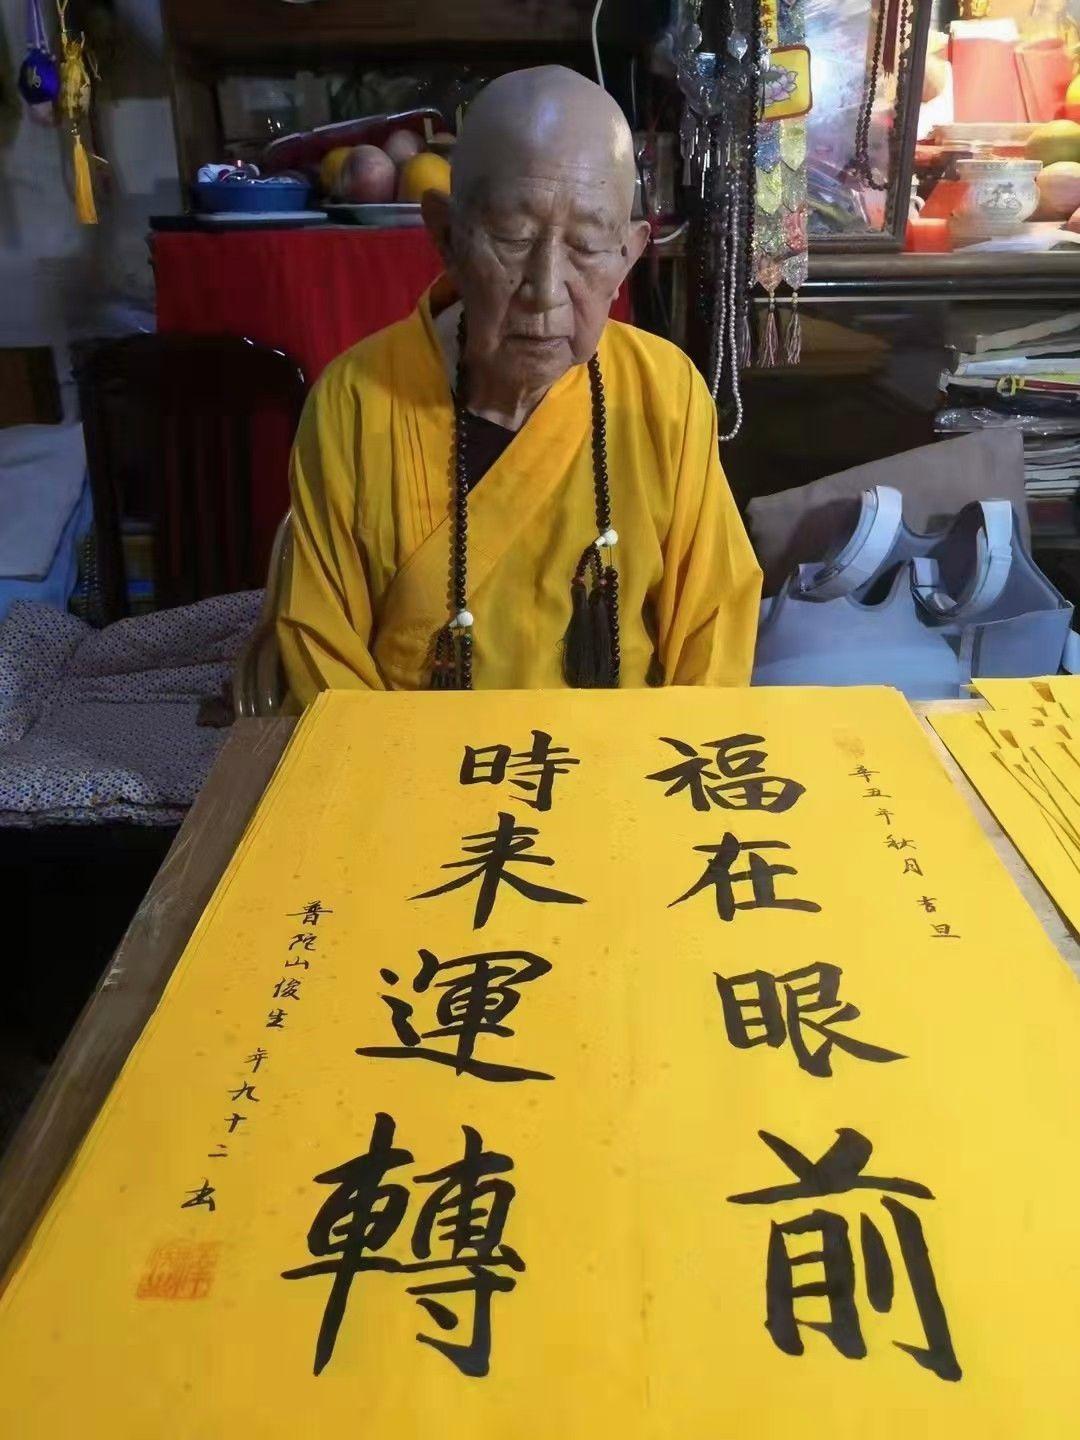 辛丑年秋月吉旦
福在眼前
時来運轉
普陀山俊生年九十二书